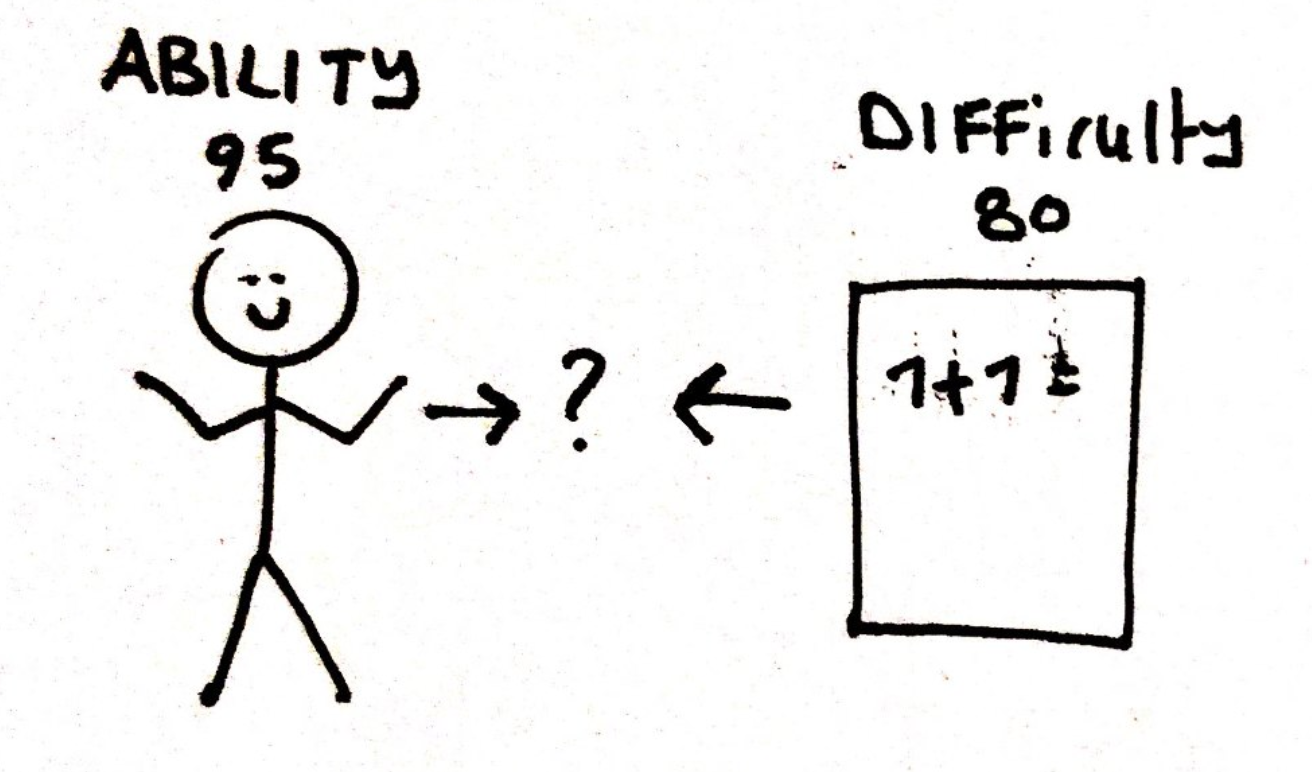 ABILITY
95
DIFFiculty
80
?
1+1=